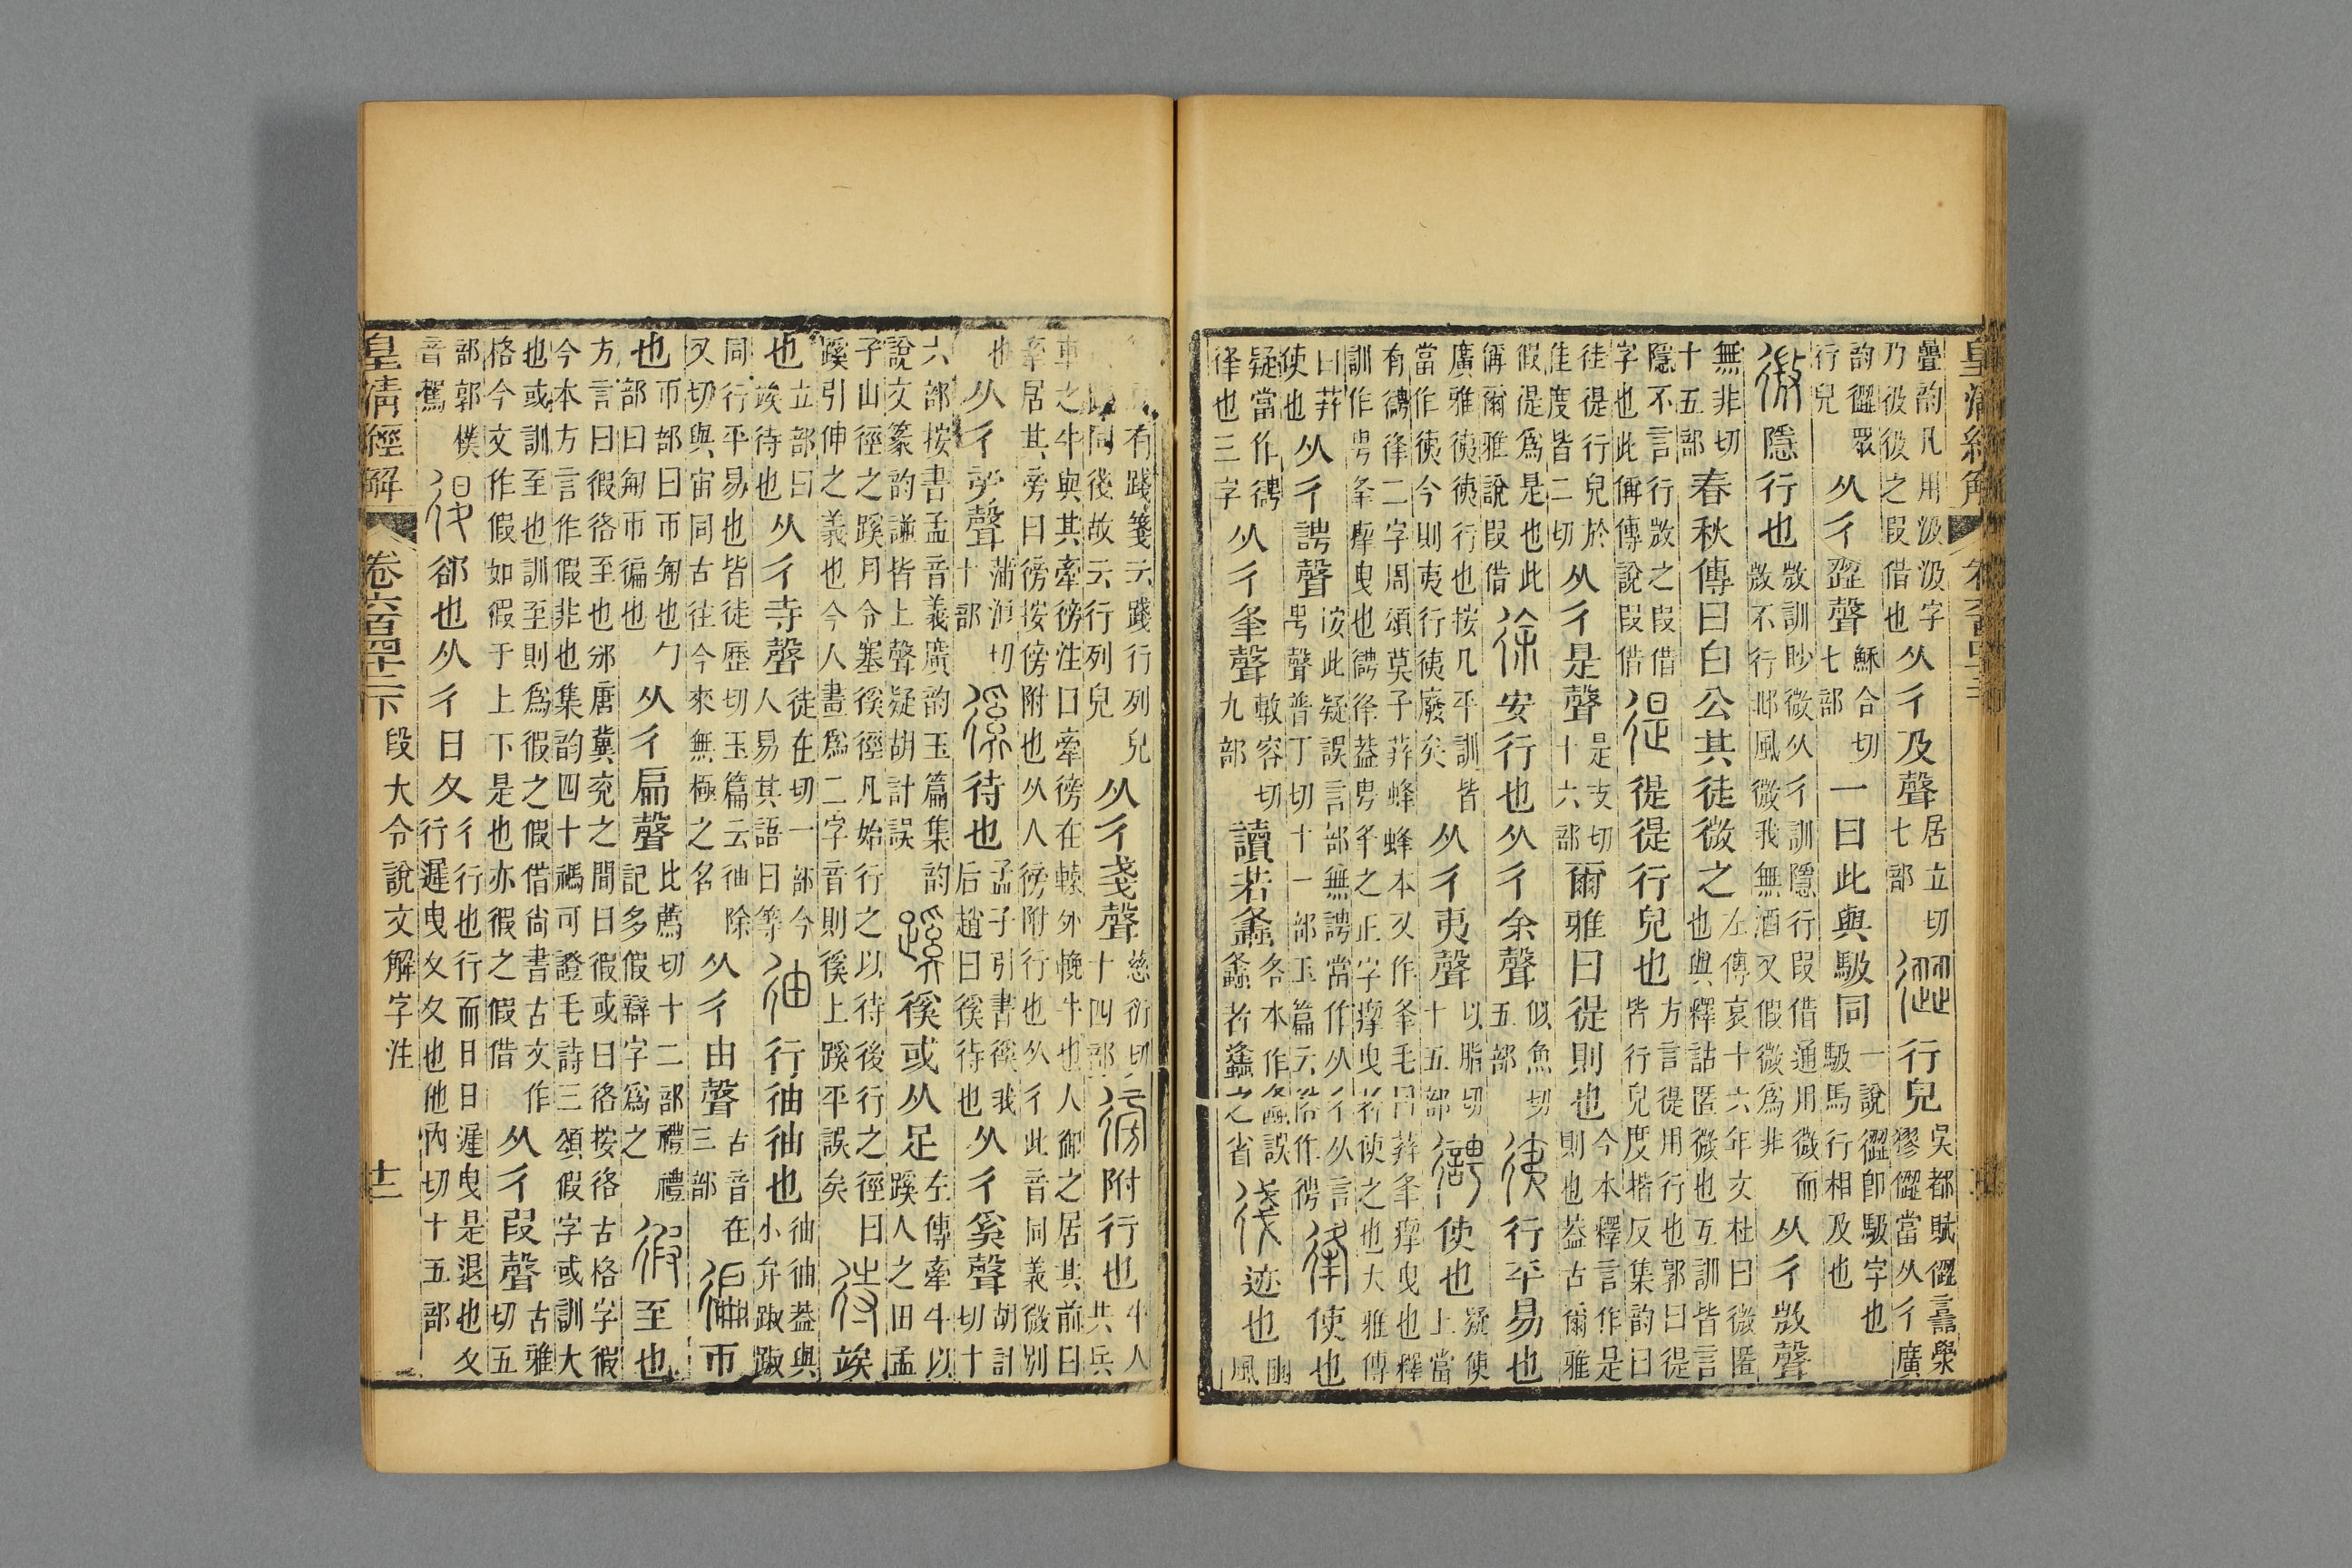 曡韵凡用汲汲字乃彶彶之叚借也从彳及聲居立切七部行皃吳都賦𢕬譶澩㺒𢕬當从彳廣
韵𢕬眾行皃从彳歰聲穌合切七部一曰此與馺同一說𢕬卽馺字也馺馬行相及也
微隱行也㪣訓眇微从彳訓隱行叚借通用微而㪣不行邶風微我無酒又假微爲非从彳㪣聲
無非切十五部春秋傳曰白公其徒微之左傳哀十六年文杜曰微匿也與釋詁匿微也互訓皆言
隱不言行㪣之叚借字也此偁傳說叚借徥徥徥行皃也方言徥用行也郭曰徥皆行皃度揩反集韵曰
徍徥行皃於佳度皆二切从彳是聲是支切十六部爾雅曰徥則也今本釋言作是則也葢古爾雅
假徥爲是也此偁爾雅說叚借徐安行也从彳余聲似魚切五部徚行平易也
廣雅徚徚行也按凡平訓皆當作徚今則夷行徚廢矣从彳夷聲以脂切十五部使也疑使上當
有𢓳夆二字周頌莫予荓蜂蜂本又作夆毛曰荓夆瘳曳也釋訓作甹夆掣曳也𢓳夆葢甹夆之正字瘳曳者使之也大雅傳
曰荓使也从彳諤聲按此疑誤言部無諤當作从彳从言甹聲普丁切十一部玉篇云俗作使也
疑當作夆也三字从彳夆聲敷容切九部讀若螽各本作螽誤者蠭之省迹也豳風
有踐箋云踐行列皃踐同後故云行列皃从彳戔聲慈衍切十四部徬附行也牛人共兵
車之牛與其牽徬注曰牽徬在轅外輓牛也人御之居其前曰牽居其旁曰徬按傍附也从人徬附行也从彳此音同義微別
也从彳旁聲蒲浪切十部徯待也孟子引書徯我后趙曰徯待也从彳奚聲胡計切十
六部按書孟音義廣韵玉篇集韵說文篆韵譜皆上聲疑胡計誤蹊徯或从足左傳牽牛以蹊人之田孟
子山徑之蹊月令塞徯徑凡始行之以待後行之徑曰蹊引伸之義也今人畫爲二字音則徯上蹊平誤矣待竢
也立部曰竢待也从彳寺聲徒在切一部今人易其語曰等㣙行㣙㣙也㣙㣙葢與小弁踧踧
同行平易也皆徒歷切玉篇云㣙除又切與宙同古往今來無極之名从彳由聲古音在三部徧帀
也帀部曰帀匊也勹部曰匊帀徧也从彳扁聲比薦切十二部禮禮記多假辯字爲之徦至也
方言曰徦佫至也邠唐冀兖之閒曰徦或曰佫按佫古格字徦今本方言作假非也集韵四十禡可證毛詩三頌假字或訓大
也或訓至也訓至則爲徦之假借尙書古文作格今文作假如假于上下是也亦徦之假借从彳叚聲古雅切五
部郭樸音駕復卻也从彳日夂彳行也行而日日遲曳是退也夂行遲曳夂夂也他內切十五部
皇清經解 卷六百四十二下 段大令說文解字注 十二